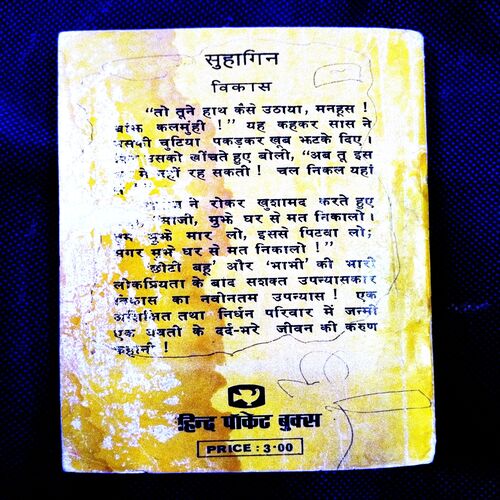 सुहागिन
विकास
"तो तूने हाथ कैसे उठाया, मनहूस !
बांझ कलमुंही !" यह कहकर सास ने
उसकी चुटिया पकड़कर खूब झटके दिए ।
उसको खींचते हुए बोली, "अब तू इस
में नहीं रह सकती ! चल निकल यहां
ने रोकर खुशामद करते हुए
माजी, मुझे घर से मत निकालो ।
मुझे मार लो, इससे पिटवा लो;
मगर मुझे घर से मत निकालो !"
'छोटी बहू' और 'भाभी' की भारी
लोकप्रियता के बाद सशक्त उपन्यासकार
विकास का नवीनतम उपन्यास ! एक
अशिक्षित तथा निर्धन परिवार में जन्मी
एक युवती के दर्द-भरे जीवन की करुण
कहानी !
हिन्द पॉकेट बुक्स
PRICE : 3·00